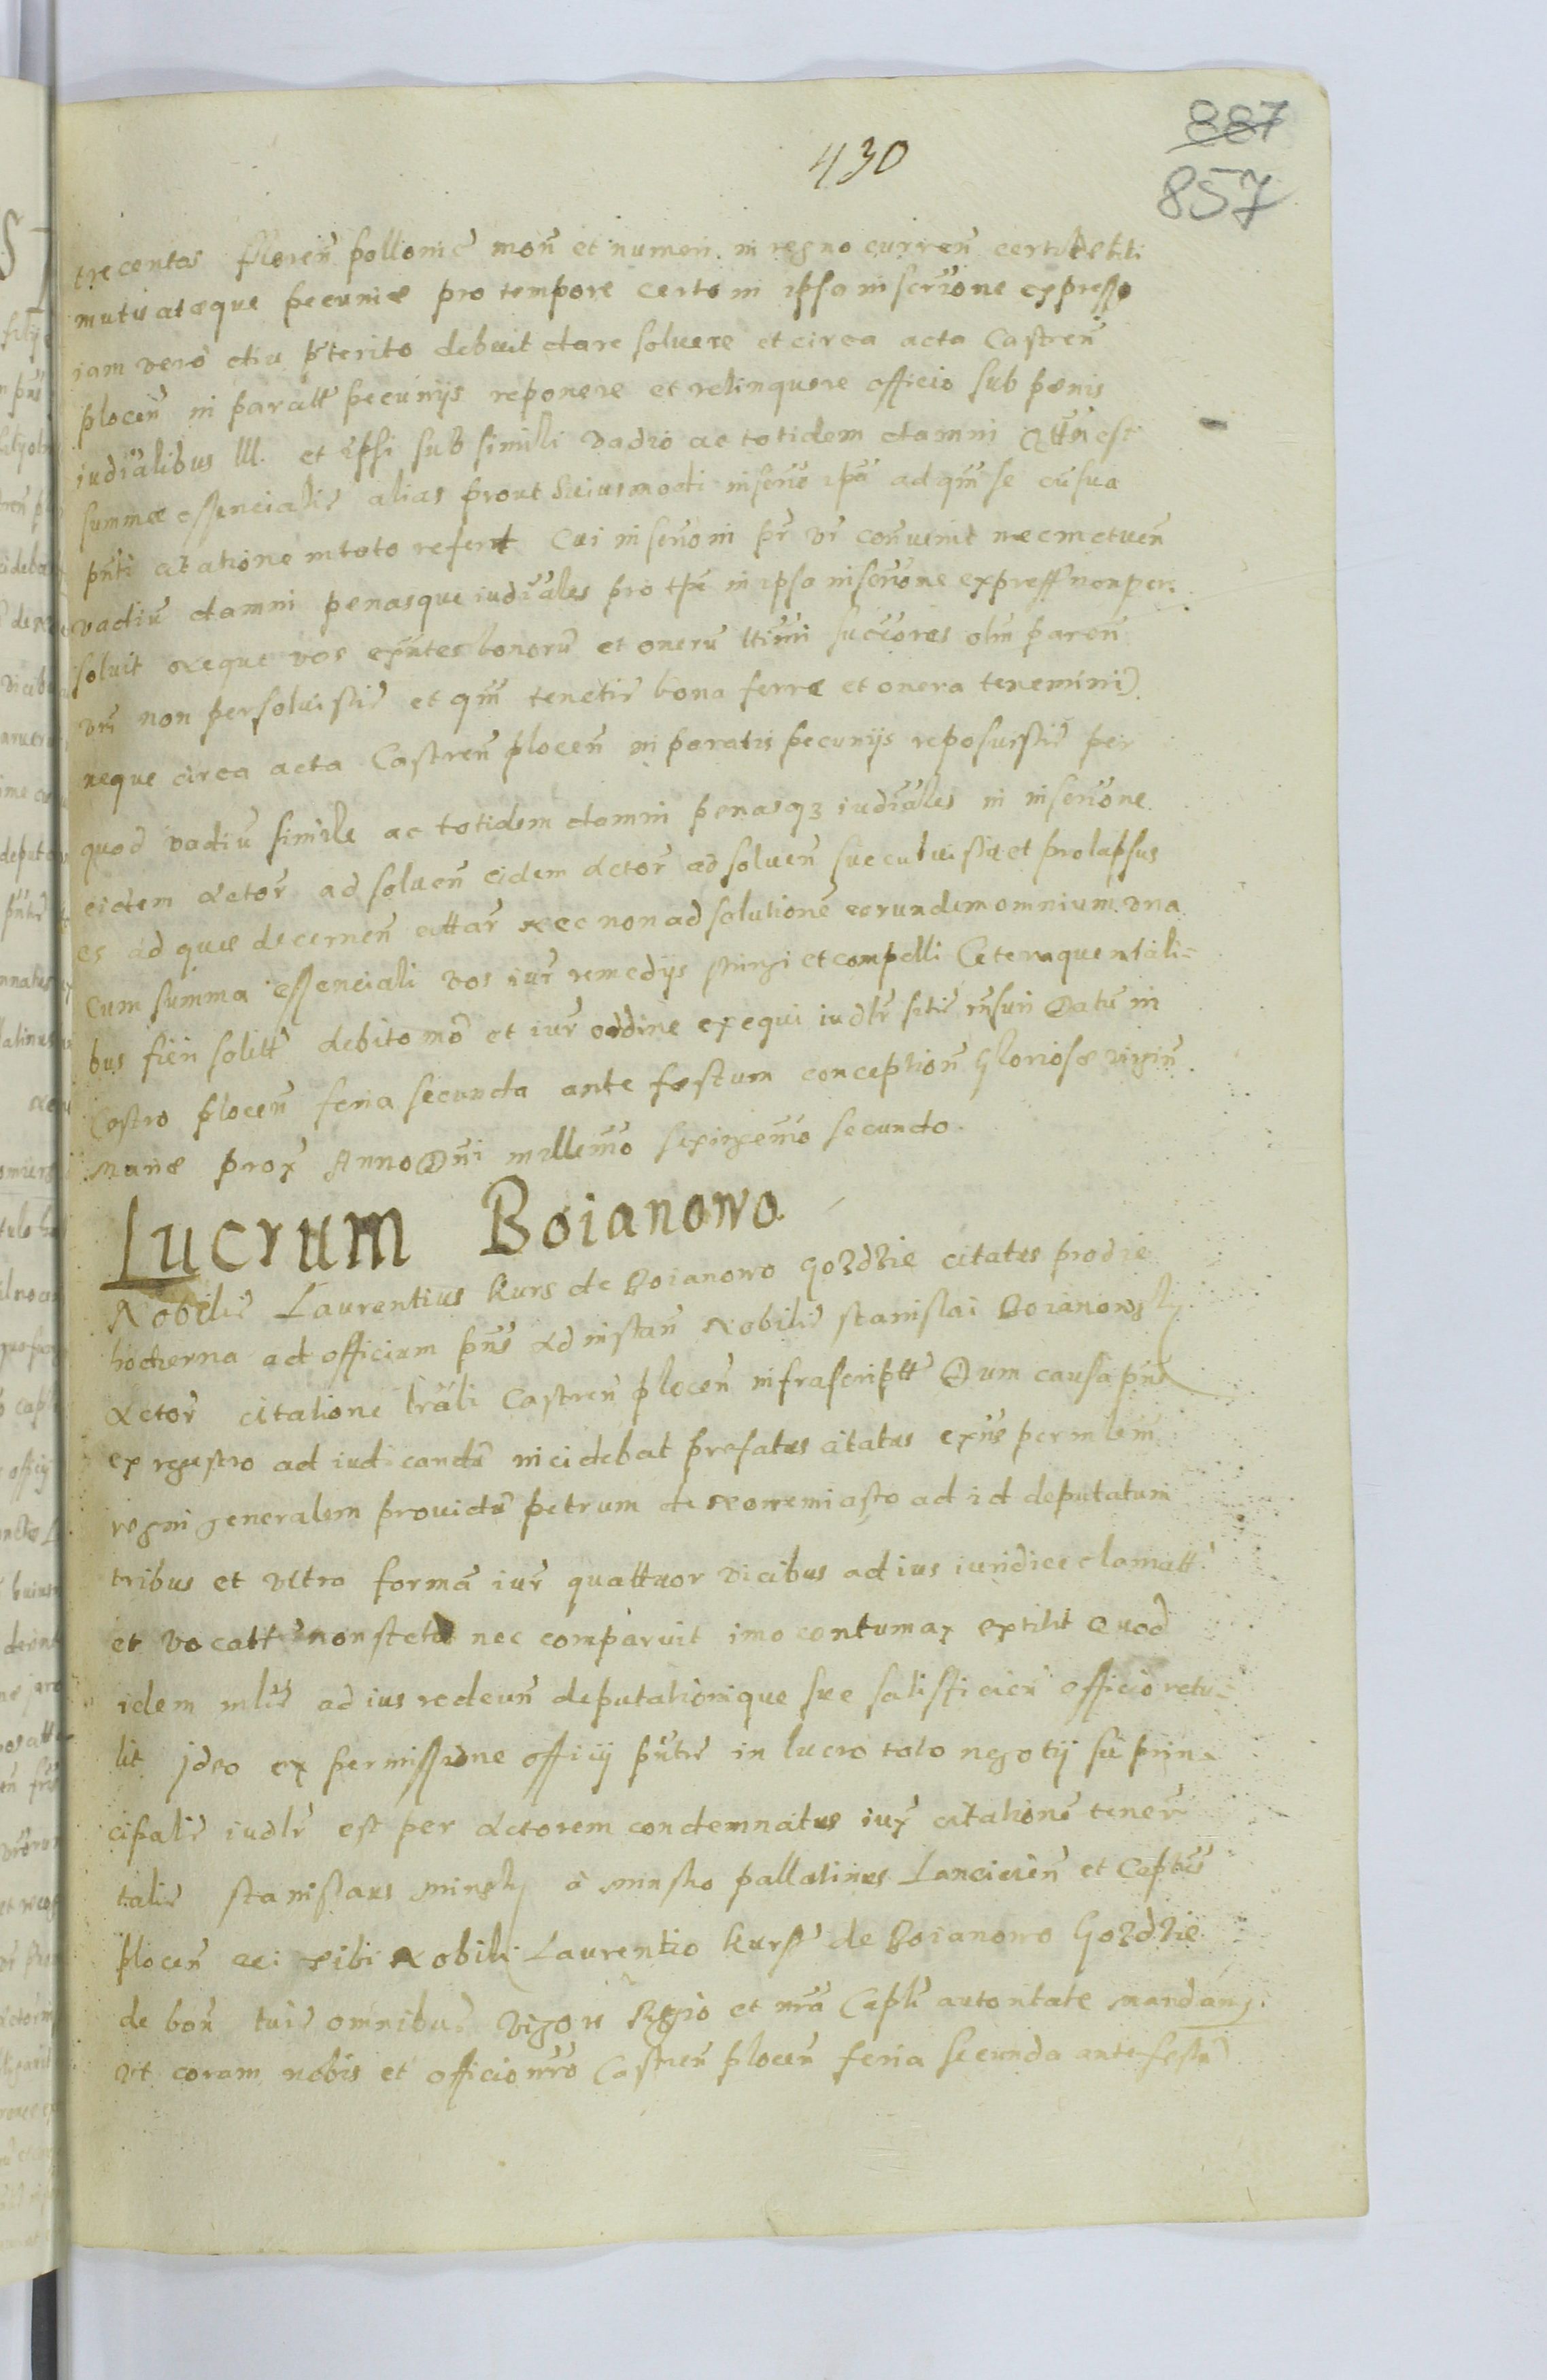 887
430
857
trecentas floreñ pollonic̃ moñ et numeri in regno curreñ certi debiti
mutuatæque pecuniæ pro tempore certo in ipsa inscrione expresso
iam vero diu p̃terito debuit dare soluere et circa acta Castreñ
ploceñ in paratt pecunijs reponere et relinquere officio sub pœnis
iudialibus lll. et ipsi sub simili vadio ac totidem damni
summæ essencialis alias prout huiusmodi ad qm̃ se cũ sua
pñti citatione in toto refert Cui p̃r vr̃ contrauenit nec metuen
vadiũ damni penasque iudiales pro tp̃e in ipsa inscrione express non per
soluit neque vos bonorũ et onerũ succores olim pareñ
vr̃i non persoluistis et qm̃ tenetis bona ferre et onera tenemini)
neque circa acta Castreñ ploceñ in paratis pecunijs reposuistis per
quod vadiũ simile ac totidem damni penasq3 iudiales in inscrione
eidem Actor̃ ad solueñ eidem Actor̃ ad solueñ succubuistis et prolapsus
es ad quæ decerneñ cittar̃ nec non ad solutionẽ eorundem omnium vna
cum summa essenciali vos iur̃ remedijs stringi et compelli Ceteraque in tali-
bus fieri solitt debito mõ et iur̃ ordine exequi iudlr̃ sitis rñsuri Datũ in
Castro ploceñ feria secunda ante festum conceptioñ Gloriosæ virgiñ
Mariæ prox̃ Anno Dñi millemõ sexingemõ secundo.
Lucrum Boianowo
Nobilis Laurentius Kurs de Boianowo Gozdzie citatus pro die
hodierna ad officium pñs Ad instañ Nobilis Stanislai Boianowsky
Actor̃ citatione lr̃ali Castreñ ploceñ infrascriptt Dum causa pñs
ex registro ad iudicandũ incidebat prefatus citatus per mlem̃
regni generalem prouidũ petrum de Nowemiasto ad id deputatum
tribus et vltro formã iur̃ quattuor vicibus ad ius iuridice clamatt
et vocatt non stetit nec comparuit imo contumax extitit Quod
idem mlis̃ ad ius redeuñ deputationique suæ satisficien officio retu-
lit Ideo ex permissione officij pñtis in lucro toto negotij sui prin-
cipalis iudlr̃ est per Actorem condemnatus iux̃ citationẽ tener̃
talis Stanislaus Minsky à Minsko pallatinus Lancicieñ et Capt̃us
ploceñ tibi Nobili Laurentio Kurss de Boianowo Gozdzie
de boñ tuis omnibus Vigore Regio et nr̃a Capli autoritate mandamus.
vt coram nobis et officio nr̃o Castreñ ploceñ feria secunda ante festũ